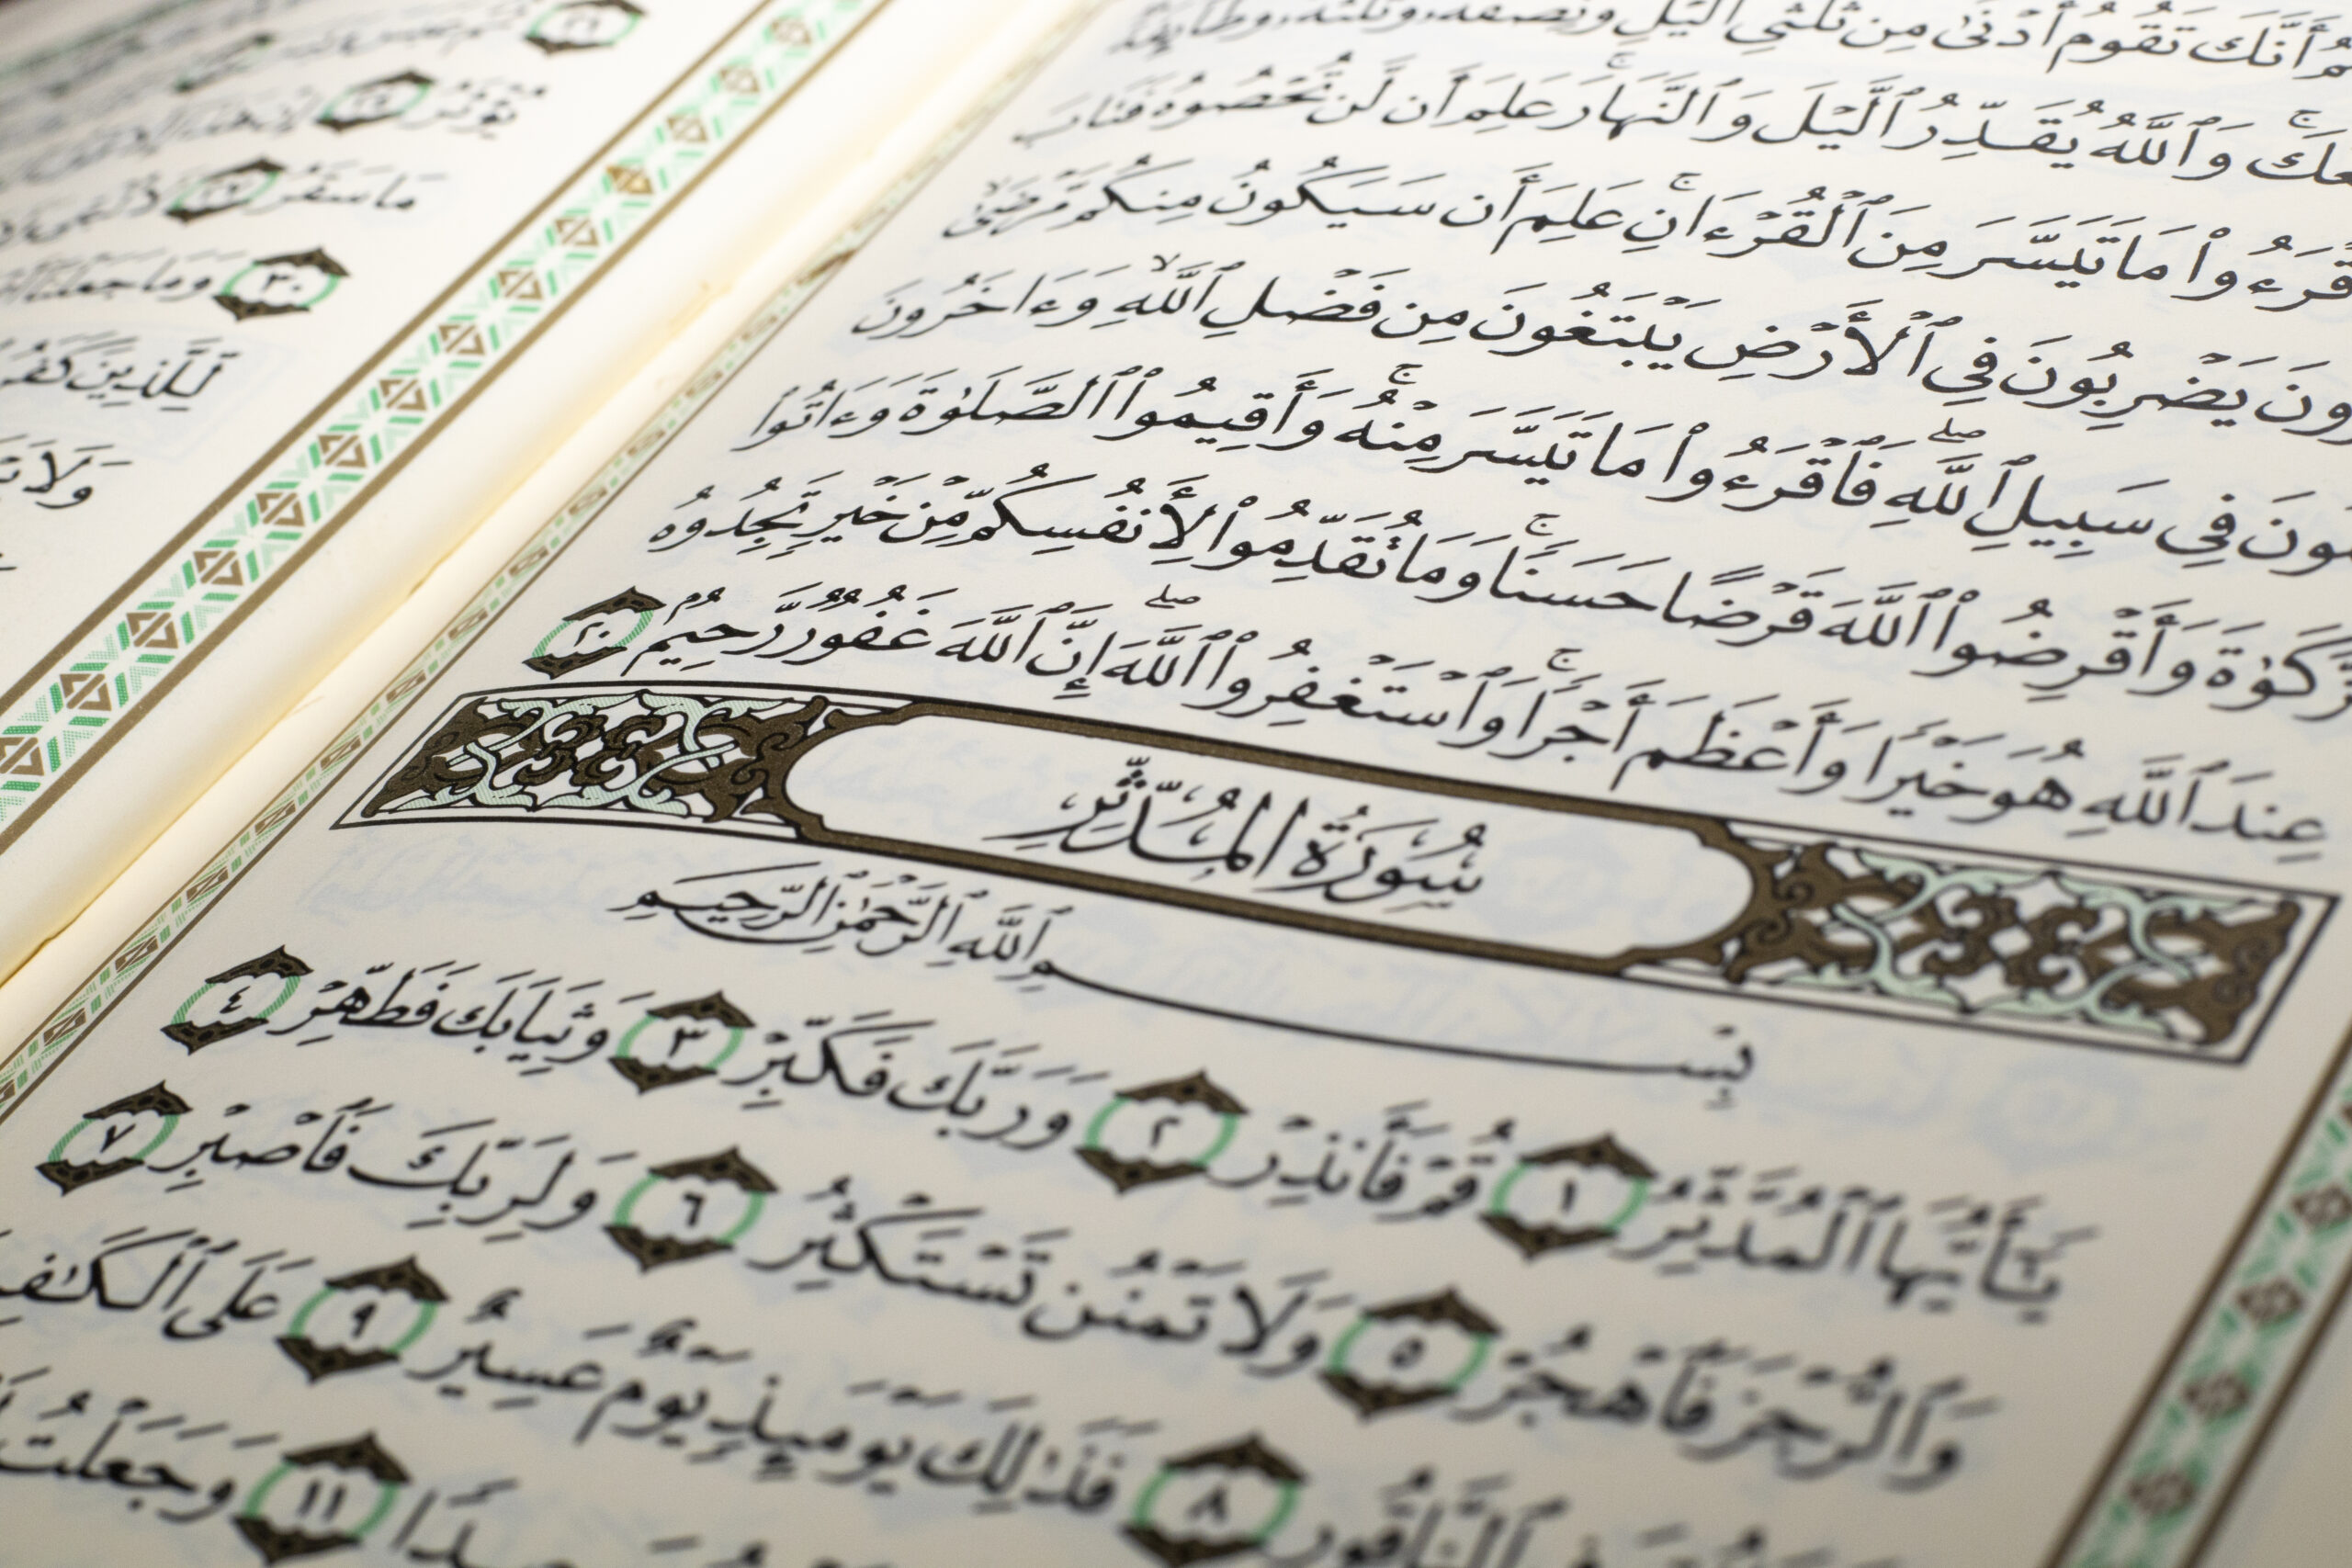 أَنَّكَ تَقُومُ أَدْنَىٰ مِن ثُلُثَىِ ٱلَّيْلِ وَنِصْفَهُۥ وَثُلُثَهُۥ وَطَآئِفَةٌ
وَٱللَّهُ يُقَدِّرُ ٱلَّيْلَ وَٱلنَّهَارَ عَلِمَ أَن لَّن تُحْصُوهُ فَتَابَ
مَا تَيَسَّرَ مِنَ ٱلْقُرْءَانِ عَلِمَ أَن سَيَكُونُ مِنكُم مَّرْضَىٰ
يَضْرِبُونَ فِى ٱلْأَرْضِ يَبْتَغُونَ مِن فَضْلِ ٱللَّهِ وَءَاخَرُونَ
فِى سَبِيلِ ٱللَّهِ فَٱقْرَءُوا۟ مَا تَيَسَّرَ مِنْهُ وَأَقِيمُوا۟ ٱلصَّلَوٰةَ وَءَاتُوا۟
وَأَقْرِضُوا۟ ٱللَّهَ قَرْضًا حَسَنًا وَمَا تُقَدِّمُوا۟ لِأَنفُسِكُم مِّنْ خَيْرٍ تَجِدُوهُ
عِندَ ٱللَّهِ هُوَ خَيْرًا وَأَعْظَمَ أَجْرًا وَٱسْتَغْفِرُوا۟ ٱللَّهَ إِنَّ ٱللَّهَ غَفُورٌ رَّحِيمٌ ٢٠
سُورَةُ المُدَّثِّرِ
بِسْمِ ٱللَّهِ ٱلرَّحْمَٰنِ ٱلرَّحِيمِ
يَٰٓأَيُّهَا ٱلْمُدَّثِّرُ ١ قُمْ فَأَنذِرْ ٢ وَرَبَّكَ فَكَبِّرْ ٣ وَثِيَابَكَ فَطَهِّرْ ٤
وَٱلرُّجْزَ فَٱهْجُرْ ٥ وَلَا تَمْنُن تَسْتَكْثِرُ ٦ وَلِرَبِّكَ فَٱصْبِرْ ٧
ٱلنَّاقُورِ ٨ فَذَٰلِكَ يَوْمَئِذٍ يَوْمٌ عَسِيرٌ ٩ عَلَى
١١ وَجَعَلْتُ
مَا سَقَرُ
٣٠ وَمَا جَعَلْنَآ
لِلَّذِينَ
وَلَا